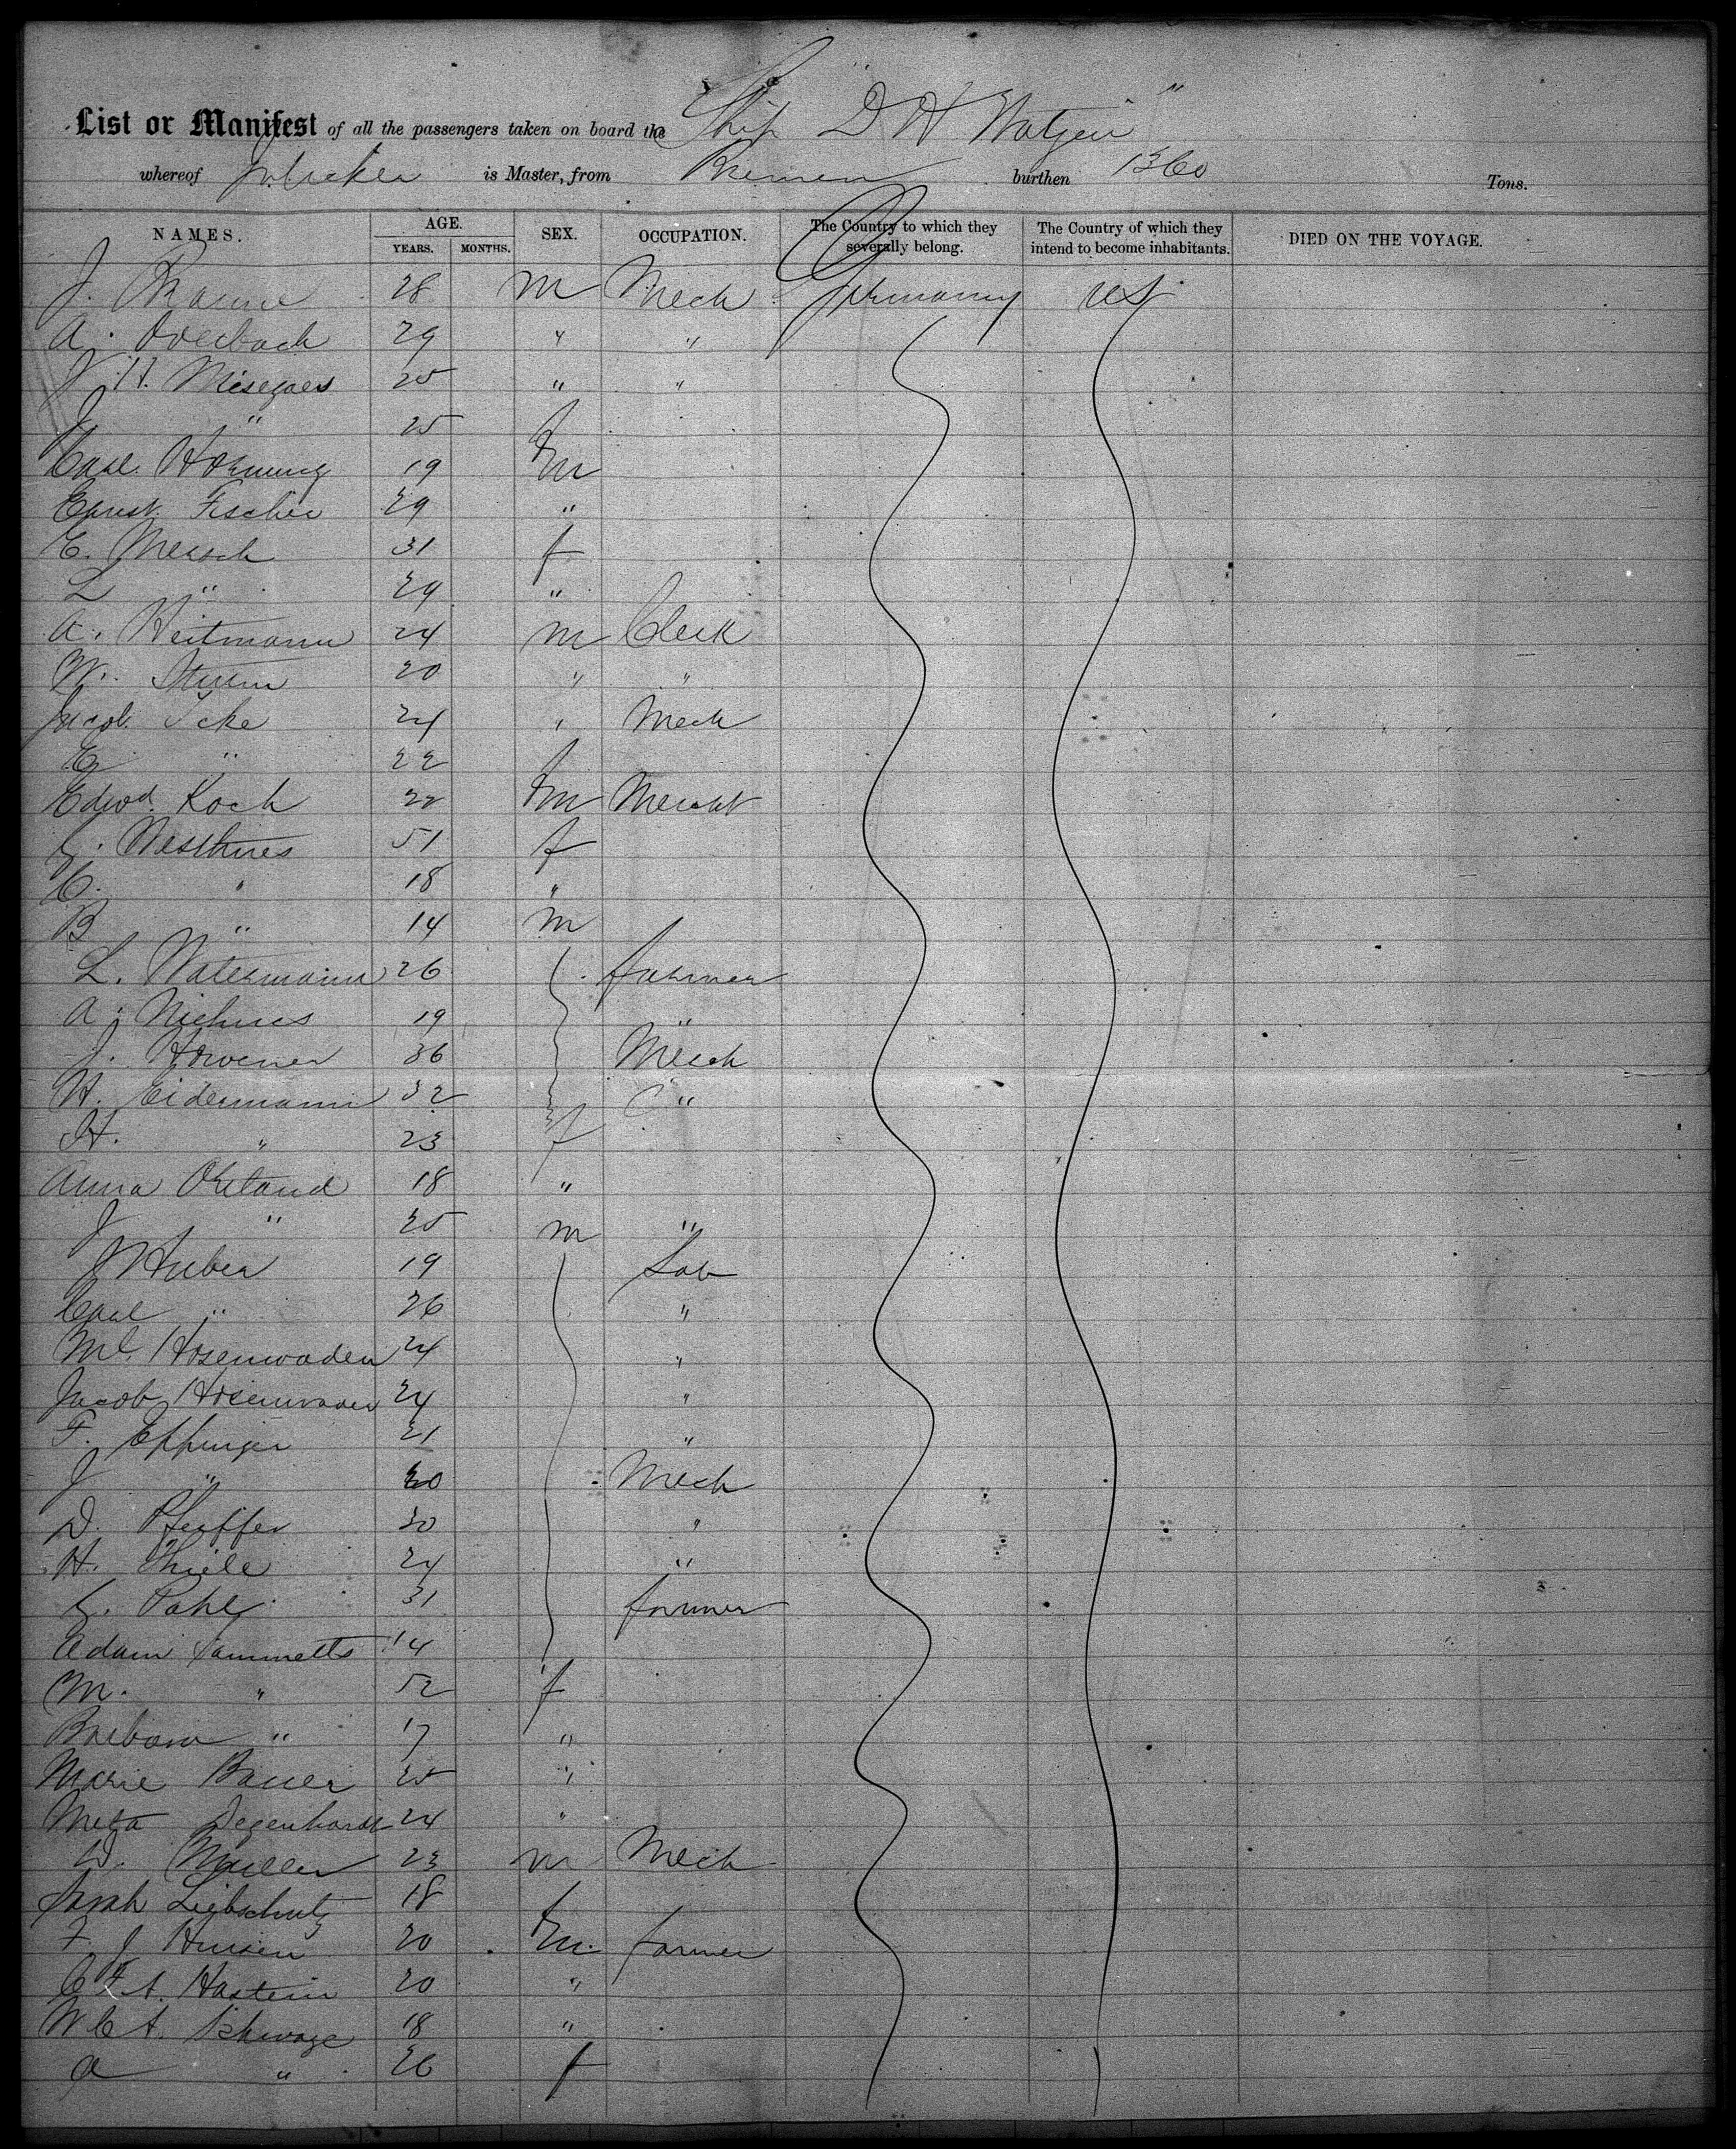 List or Manifest of all the passengers taken on board the Ship "D H Watjen"
whereof is Master, from Bremen burthen 1360 Tons.
NAMES. AGE. YEARS. MONTHS. SEX. OCCUPATION. The Country to which they severally belong. The Country of which they intend to become inhabitants. DIED ON THE VOYAGE.
J. 28 m Mech Germany US
A. Overbach 29 " "
J H. Misegaes 25 " "
J " 25 f
Carl Hornung 19 m
Ernst Fischer 29 "
E. Mersch 31 f
L " 29 "
A. Heitmann 24 m Clerk
W. Sturm 20 " "
Jacob Icke 24 " Mech
E " 22 f
Edwd. Koch 22 m Mercht
G. 51 f
C. " 18 "
B " 14 m
L. Watermann 26 farmer
A. Niehues 19 "
J. 36 Mech
H. Eidermann 32 "
H. " 23 f
Anna 18 "
J " 25 m "
J Huber 19 Lab
Carl " 26 "
Ml. Hosenwaden 24 "
Jacob 24 "
F. Eppinger 21 "
J " 20 Mech
D. Pfeiffer 30 "
H. Thiele 24 "
G. Pahl 31 farmer
Adam 14
M. " 52 f
Barbara " 17 "
Marie Bauer 25 "
Meta Degenhardt 24 "
D. Muller 23 m Mech
Sarah Liebschutz 18 f
F J 20 m farmer
C F A. Hastein 20 "
W C A. 18 "
A " 26 f